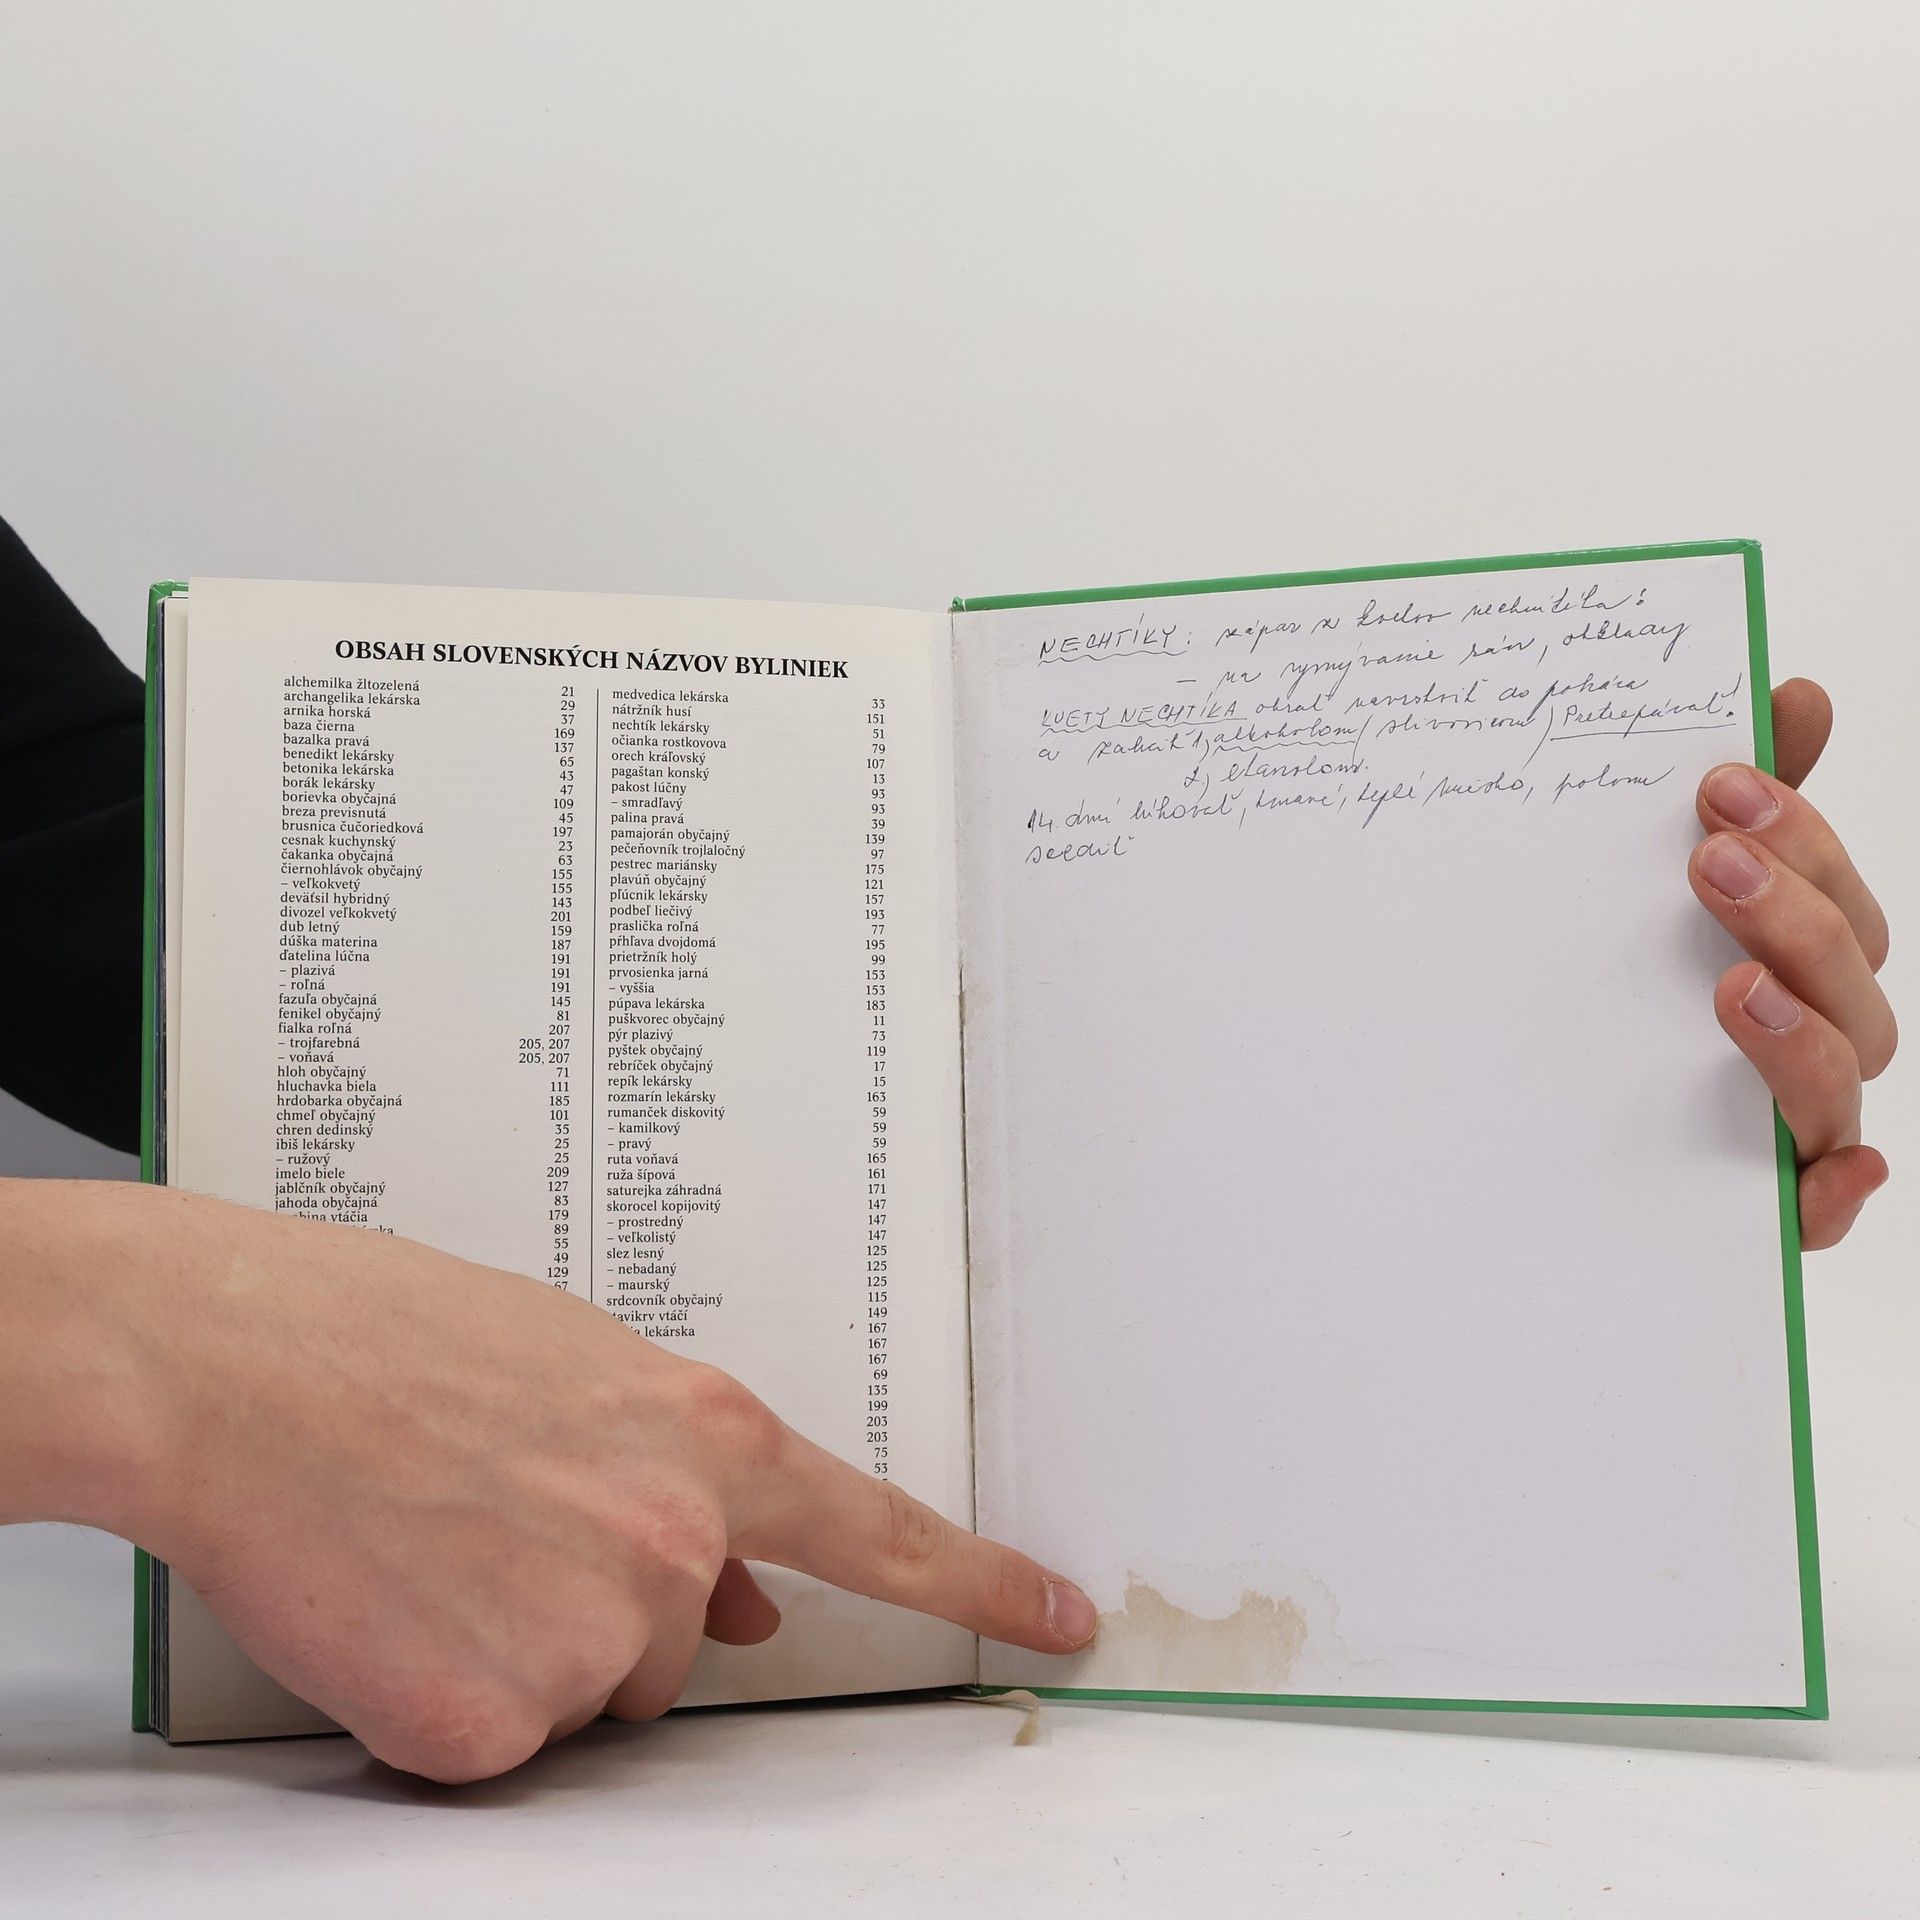 OBSAH SLOVENSKÝCH NÁZVOV BYLINIEK
alchemilka žltozelená 21
archangelika lekárska 29
arnika horská 37
baza čierna 169
bazalka pravá 137
benedikt lekársky 65
betonika lekárska 43
borák lekársky 47
borievka obyčajná 109
breza previsnutá 45
brusnica čučoriedková 197
cesnak kuchynský 23
čakanka obyčajná 63
čiernohlávok obyčajný 155
– veľkokvetý 155
deväťsil hybridný 143
divozel veľkokvetý 201
dub letný 159
dúška materina 187
ďatelina lúčna 191
– plazivá 191
– roľná 191
fazuľa obyčajná 145
fenikel obyčajný 81
fialka roľná 207
– trojfarebná 205, 207
– voňavá 205, 207
hloh obyčajný 71
hluchavka biela 111
hrdobarka obyčajná 185
chmeľ obyčajný 101
chren dedinský 35
ibiš lekársky 25
– ružový 25
imelo biele 209
jablčník obyčajný 127
jahoda obyčajná 83
vtáčia 179
89
55
49
129
67
medvedica lekárska 33
nátržník husí 151
nechtík lekársky 51
očianka rostkovova 79
orech kráľovský 107
pagaštan konský 13
pakost lúčny 93
– smradľavý 93
palina pravá 39
pamajorán obyčajný 139
pečeňovník trojlaločný 97
pestrec mariánsky 175
plavúň obyčajný 121
pľúcnik lekársky 157
podbeľ liečivý 193
praslička roľná 77
pŕhľava dvojdomá 195
prietržník holý 99
prvosienka jarná 153
– vyššia 153
púpava lekárska 183
puškvorec obyčajný 11
pýr plazivý 73
pyštek obyčajný 119
rebríček obyčajný 17
repík lekársky 15
rozmarín lekársky 163
rumanček diskovitý 59
– kamilkový 59
– pravý 59
ruta voňavá 165
ruža šípová 161
saturejka záhradná 171
skorocel kopijovitý 147
– prostredný 147
– veľkolistý 147
slez lesný 125
– nebadaný 125
– maurský 125
srdcovník obyčajný 115
vtáčí 149
lekárska 167
167
167
69
135
199
203
203
75
53
NECHTÍKY: zápar z kvetov nechtíka:
– na vymývanie rán, obklady
KVETY NECHTÍKA obrať navrstviť do pohára
a zaliať 1) alkoholom (slivovicou) Pretrepávať!
2) etanolom.
14 dní lúhovať, tmavé, teplé miesto, potom
scediť